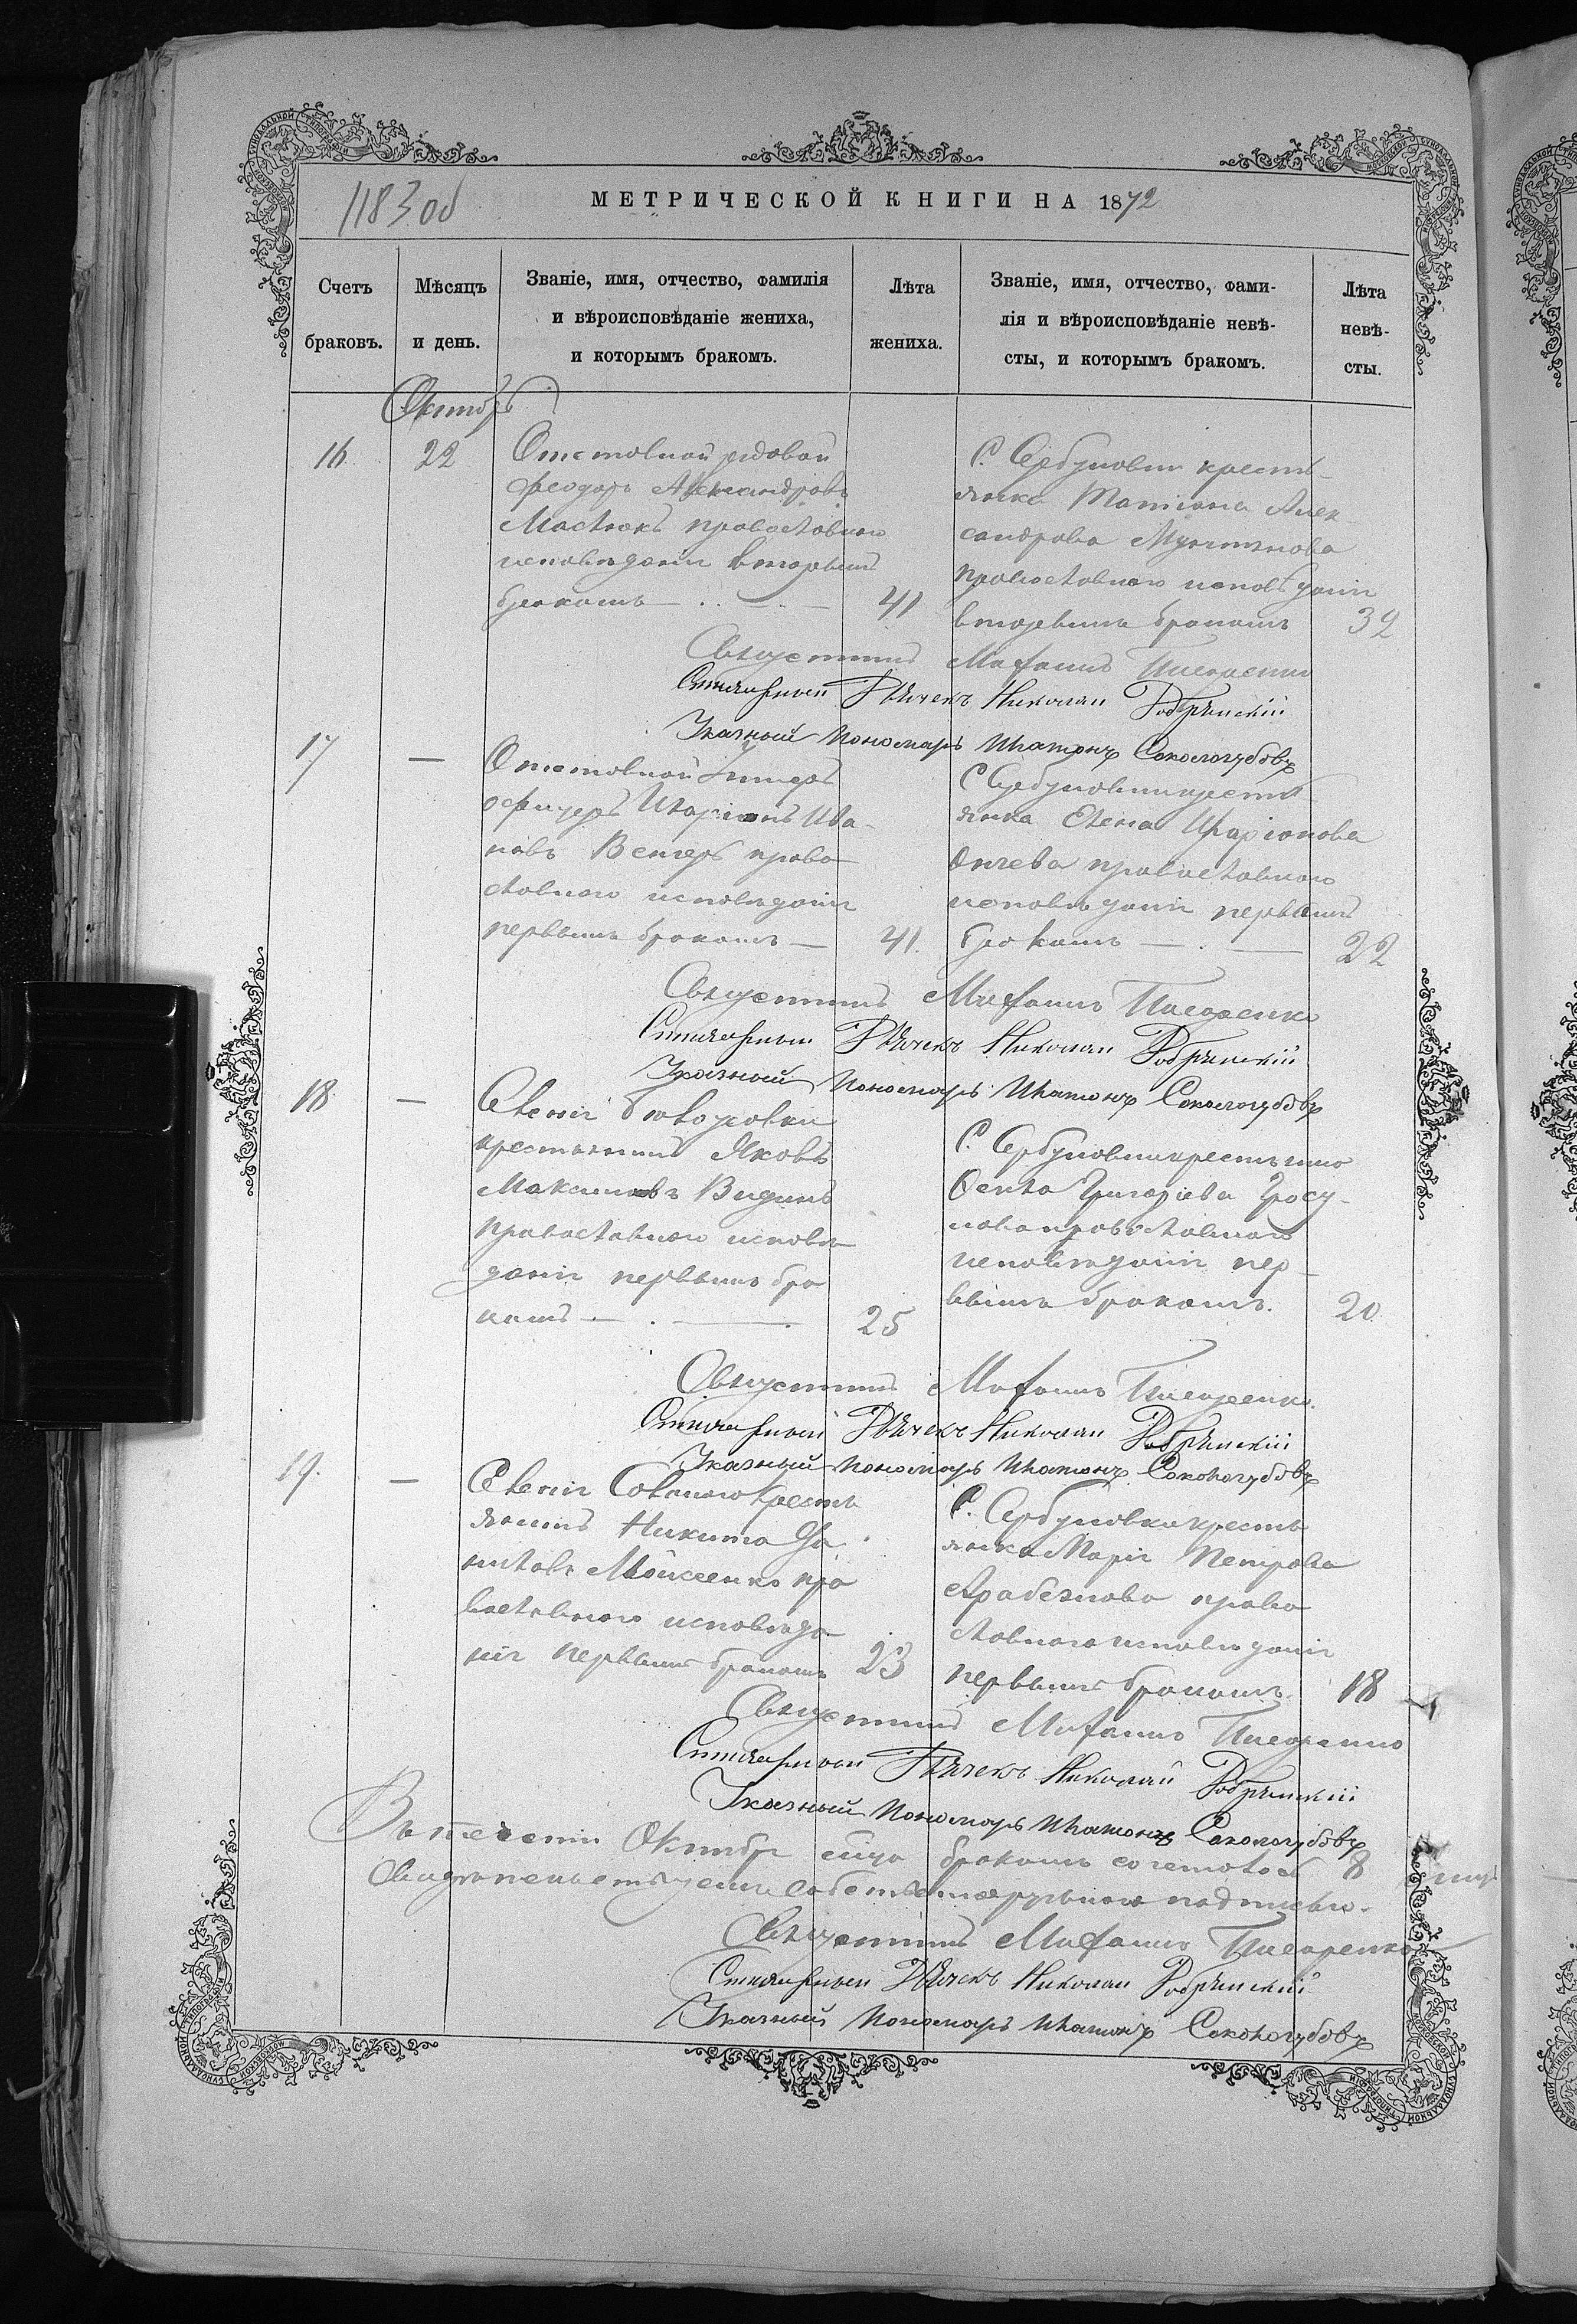 1183 об
МЕТРИЧЕСКОЙ КНИГИ НА 1872
Счетъ браковъ.
Мѣсяцъ и день.
Званіе, имя, отчество, фамилія
и вѣроисповѣданіе жениха,
и которымъ бракомъ.
Лѣта
жениха.
Званіе, имя, отчество, фами-
лія и вѣроисповѣданіе невѣ-
сты, и которымъ бракомъ.
Лѣта
невѣ-
сты.
Октябрь
16
22
Отставной рядовой
Феодоръ Александровъ
православнаго
исповѣданія вторымъ
бракомъ
41
С. Сербуловки кресть
янка Татіана Алек
сандрова
православнаго исповѣданія
вторымъ бракомъ
32
Священникъ Михаилъ Писаренко
Стихарный Дьячекъ Николай Добрянскій
Указный Пономарь Платонъ Сокологубовъ
17
—
Отставной Унтеръ
офицеръ Иларіонъ Ива-
новъ Венгеръ право
славнаго исповѣданія
первымъ бракомъ —
41.
С Сербуловки кресть
янка Елена Иларіонова
православнаго
исповѣданія первымъ
бракомъ — . —
22
Священникъ Михаилъ Писаренко
Стихарный Дьячекъ Николай Добрянскій
Указный Пономарь Платонъ Сокологубовъ
18
—
Селенія
крестьянинъ Яковъ
Максимовъ
Православнаго исповѣ
данія первымъ бра
комъ — . — .
25
С. Сербуловки крестьянка
Григоріева Росу-
лова православнаго
исповѣданія пер-
вымъ бракомъ.
20
Священникъ Михаилъ Писаренко.
Стихарный Дьячекъ Николай Добрянскій
Указный Пономарь Платонъ Сокологубовъ
19.
—
Селенія Кресть
янинъ Никита Да
ниловъ Мойсеенко пра
вославнаго исповѣда
нія первымъ бракомъ
23
С. Сербуловки кресть
янка Марія Петрова
право
славнаго исповѣданія
первымъ бракомъ.
18
Священникъ Михаилъ Писаренко
Стихарный Дьячекъ Николай Добрянскій
Указный Пономарь Платонъ Сокологубовъ
Въ теченіи Октября сего бракомъ сочеталось 8
собственноручною подписью.
Священникъ Михаилъ Писаренко
Стихарный Дьячекъ Николай Добрянскій
Указный Пономарь Платонъ Сокологубовъ